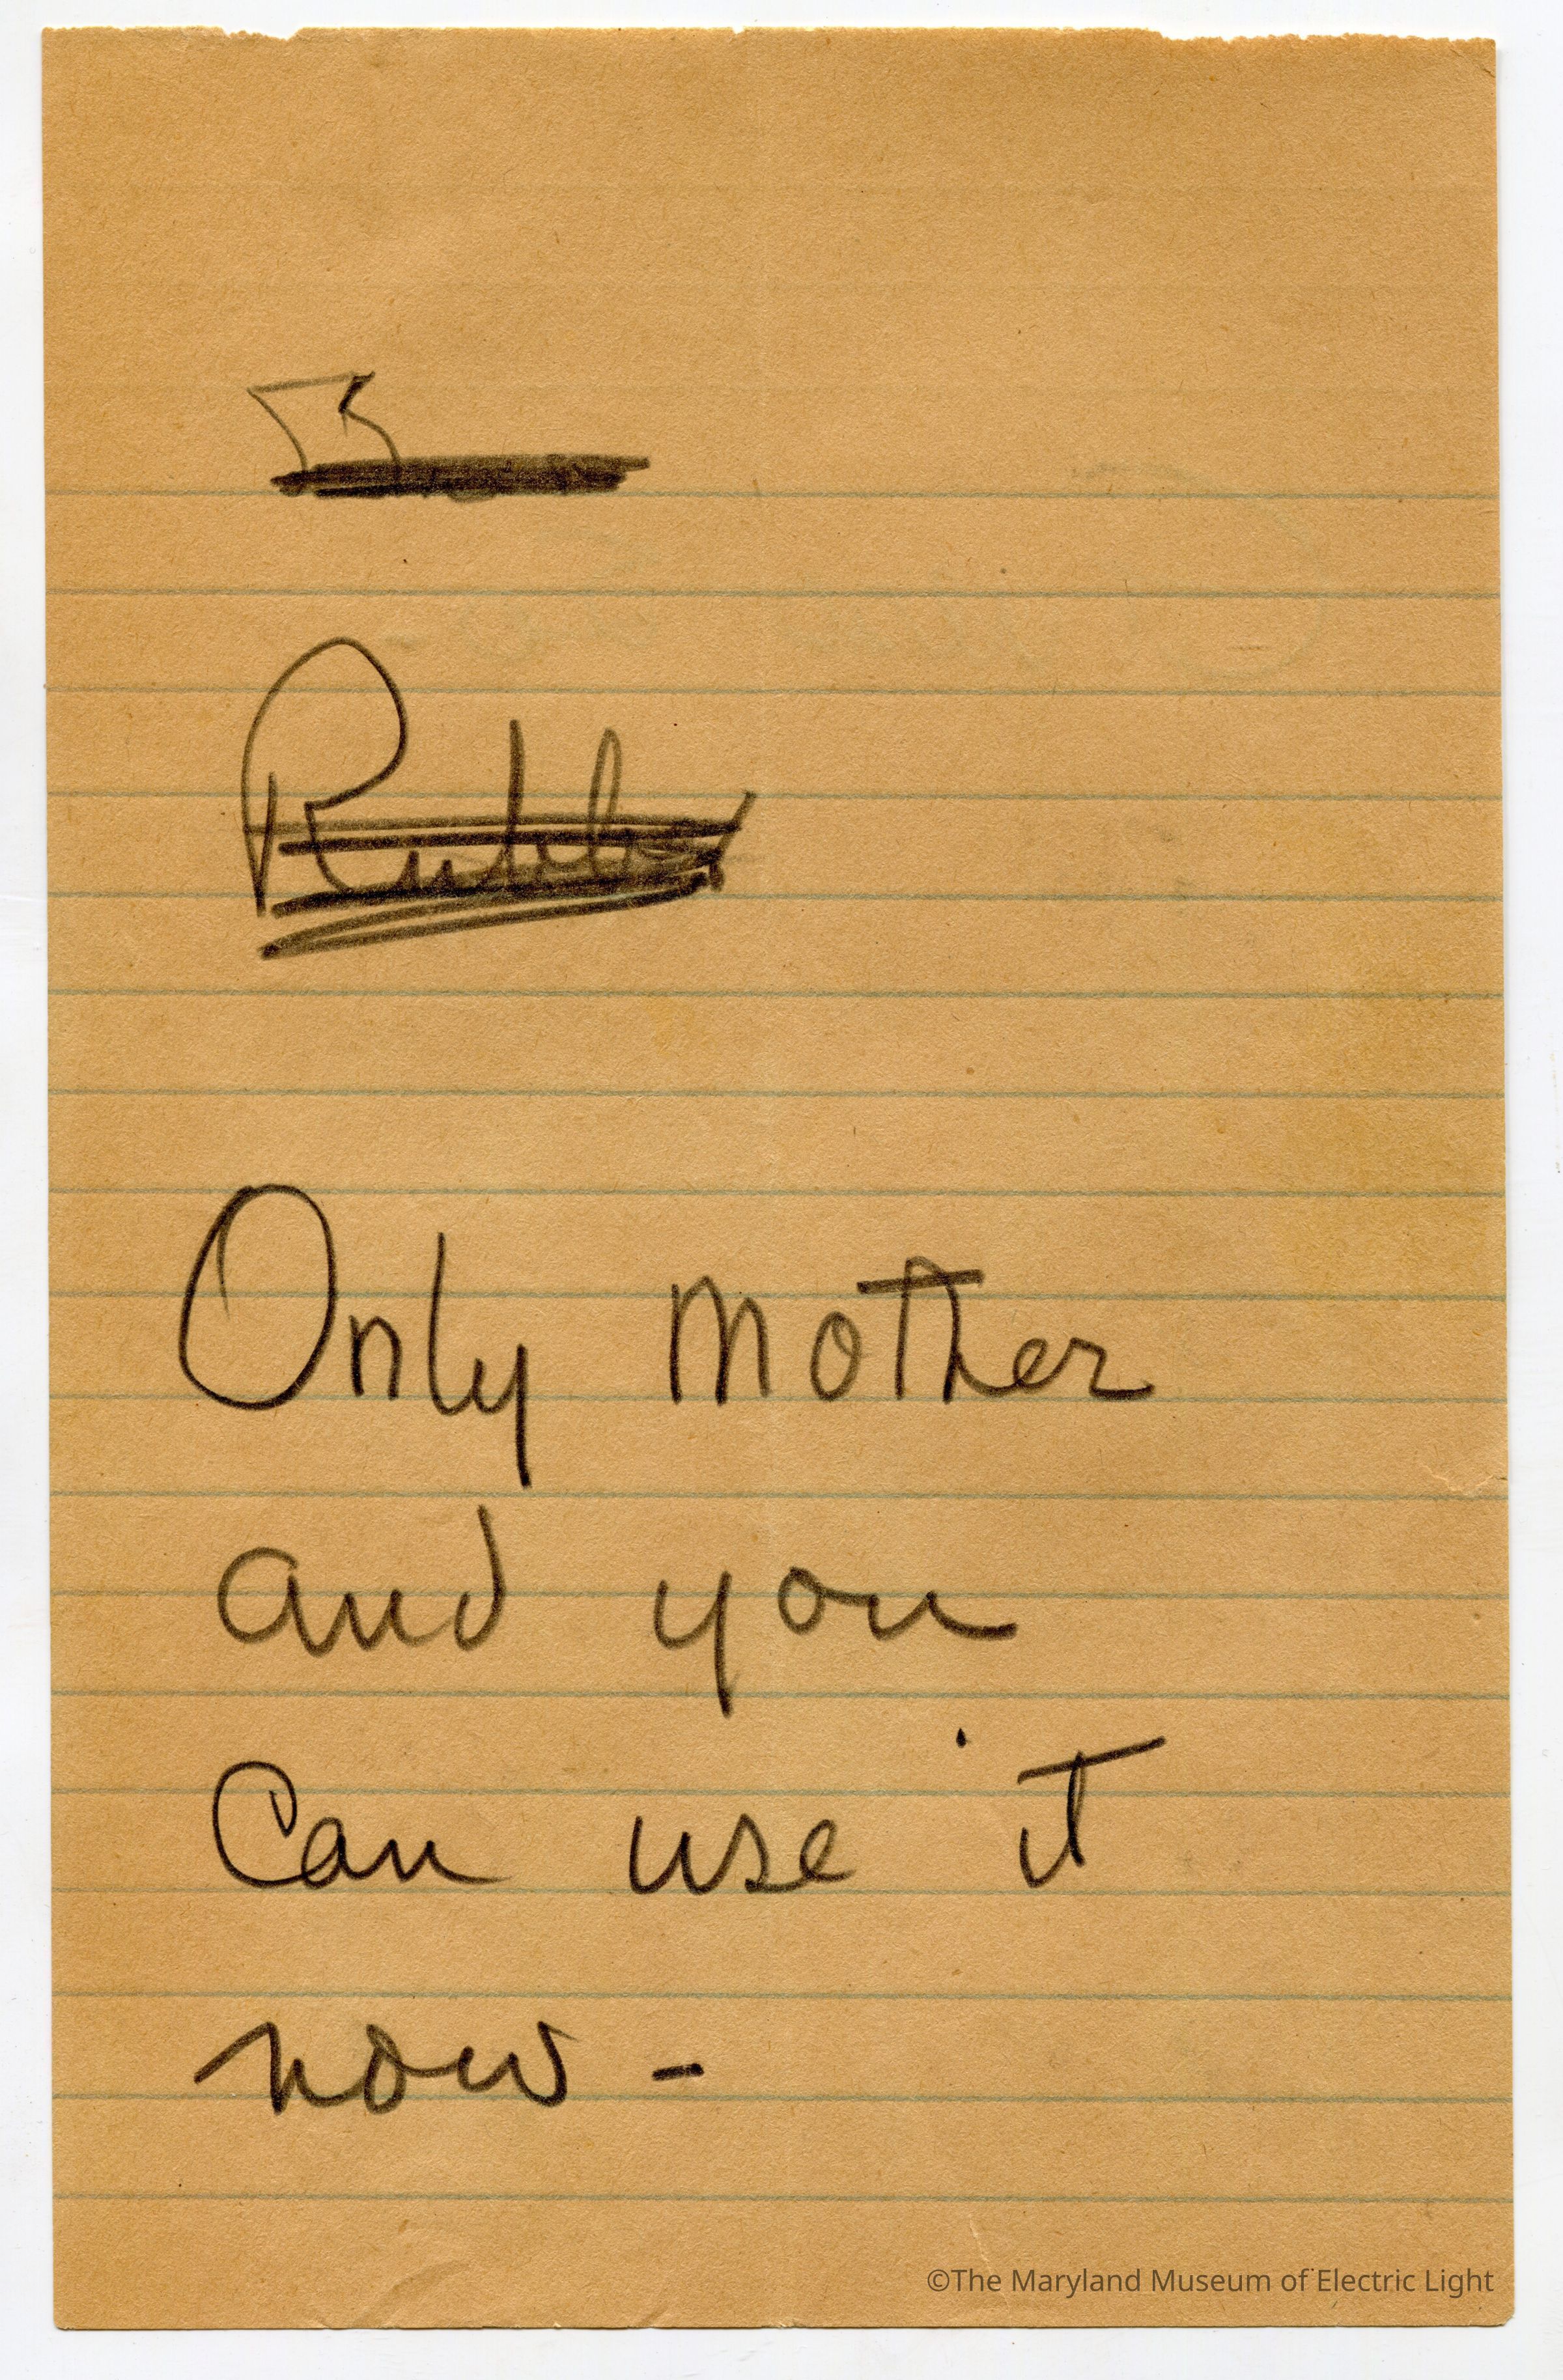 Rubber
Only Mother
and you
Can use it
now -
©The Maryland Museum of Electric Light